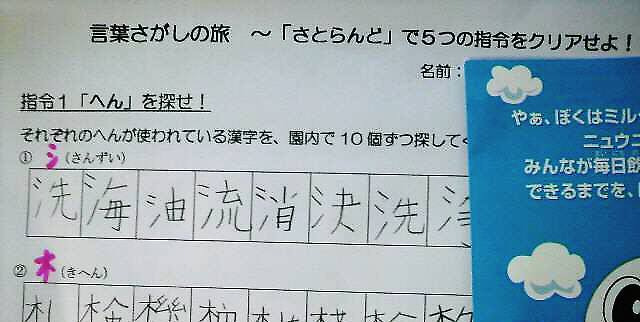 言葉さがしの旅 ～「さとらんど」で５つの指令をクリアせよ！
名前：
指令１「へん」を探せ！
それぞれのへんが使われている漢字を、園内で１０個ずつ探して
① シ（さんずい）
洗 海 油 流 消 決 洗
② 木（きへん）
札 検 機
やぁ、ぼくはミル
ニュウニ
みんなが毎日飲
できるまでを、